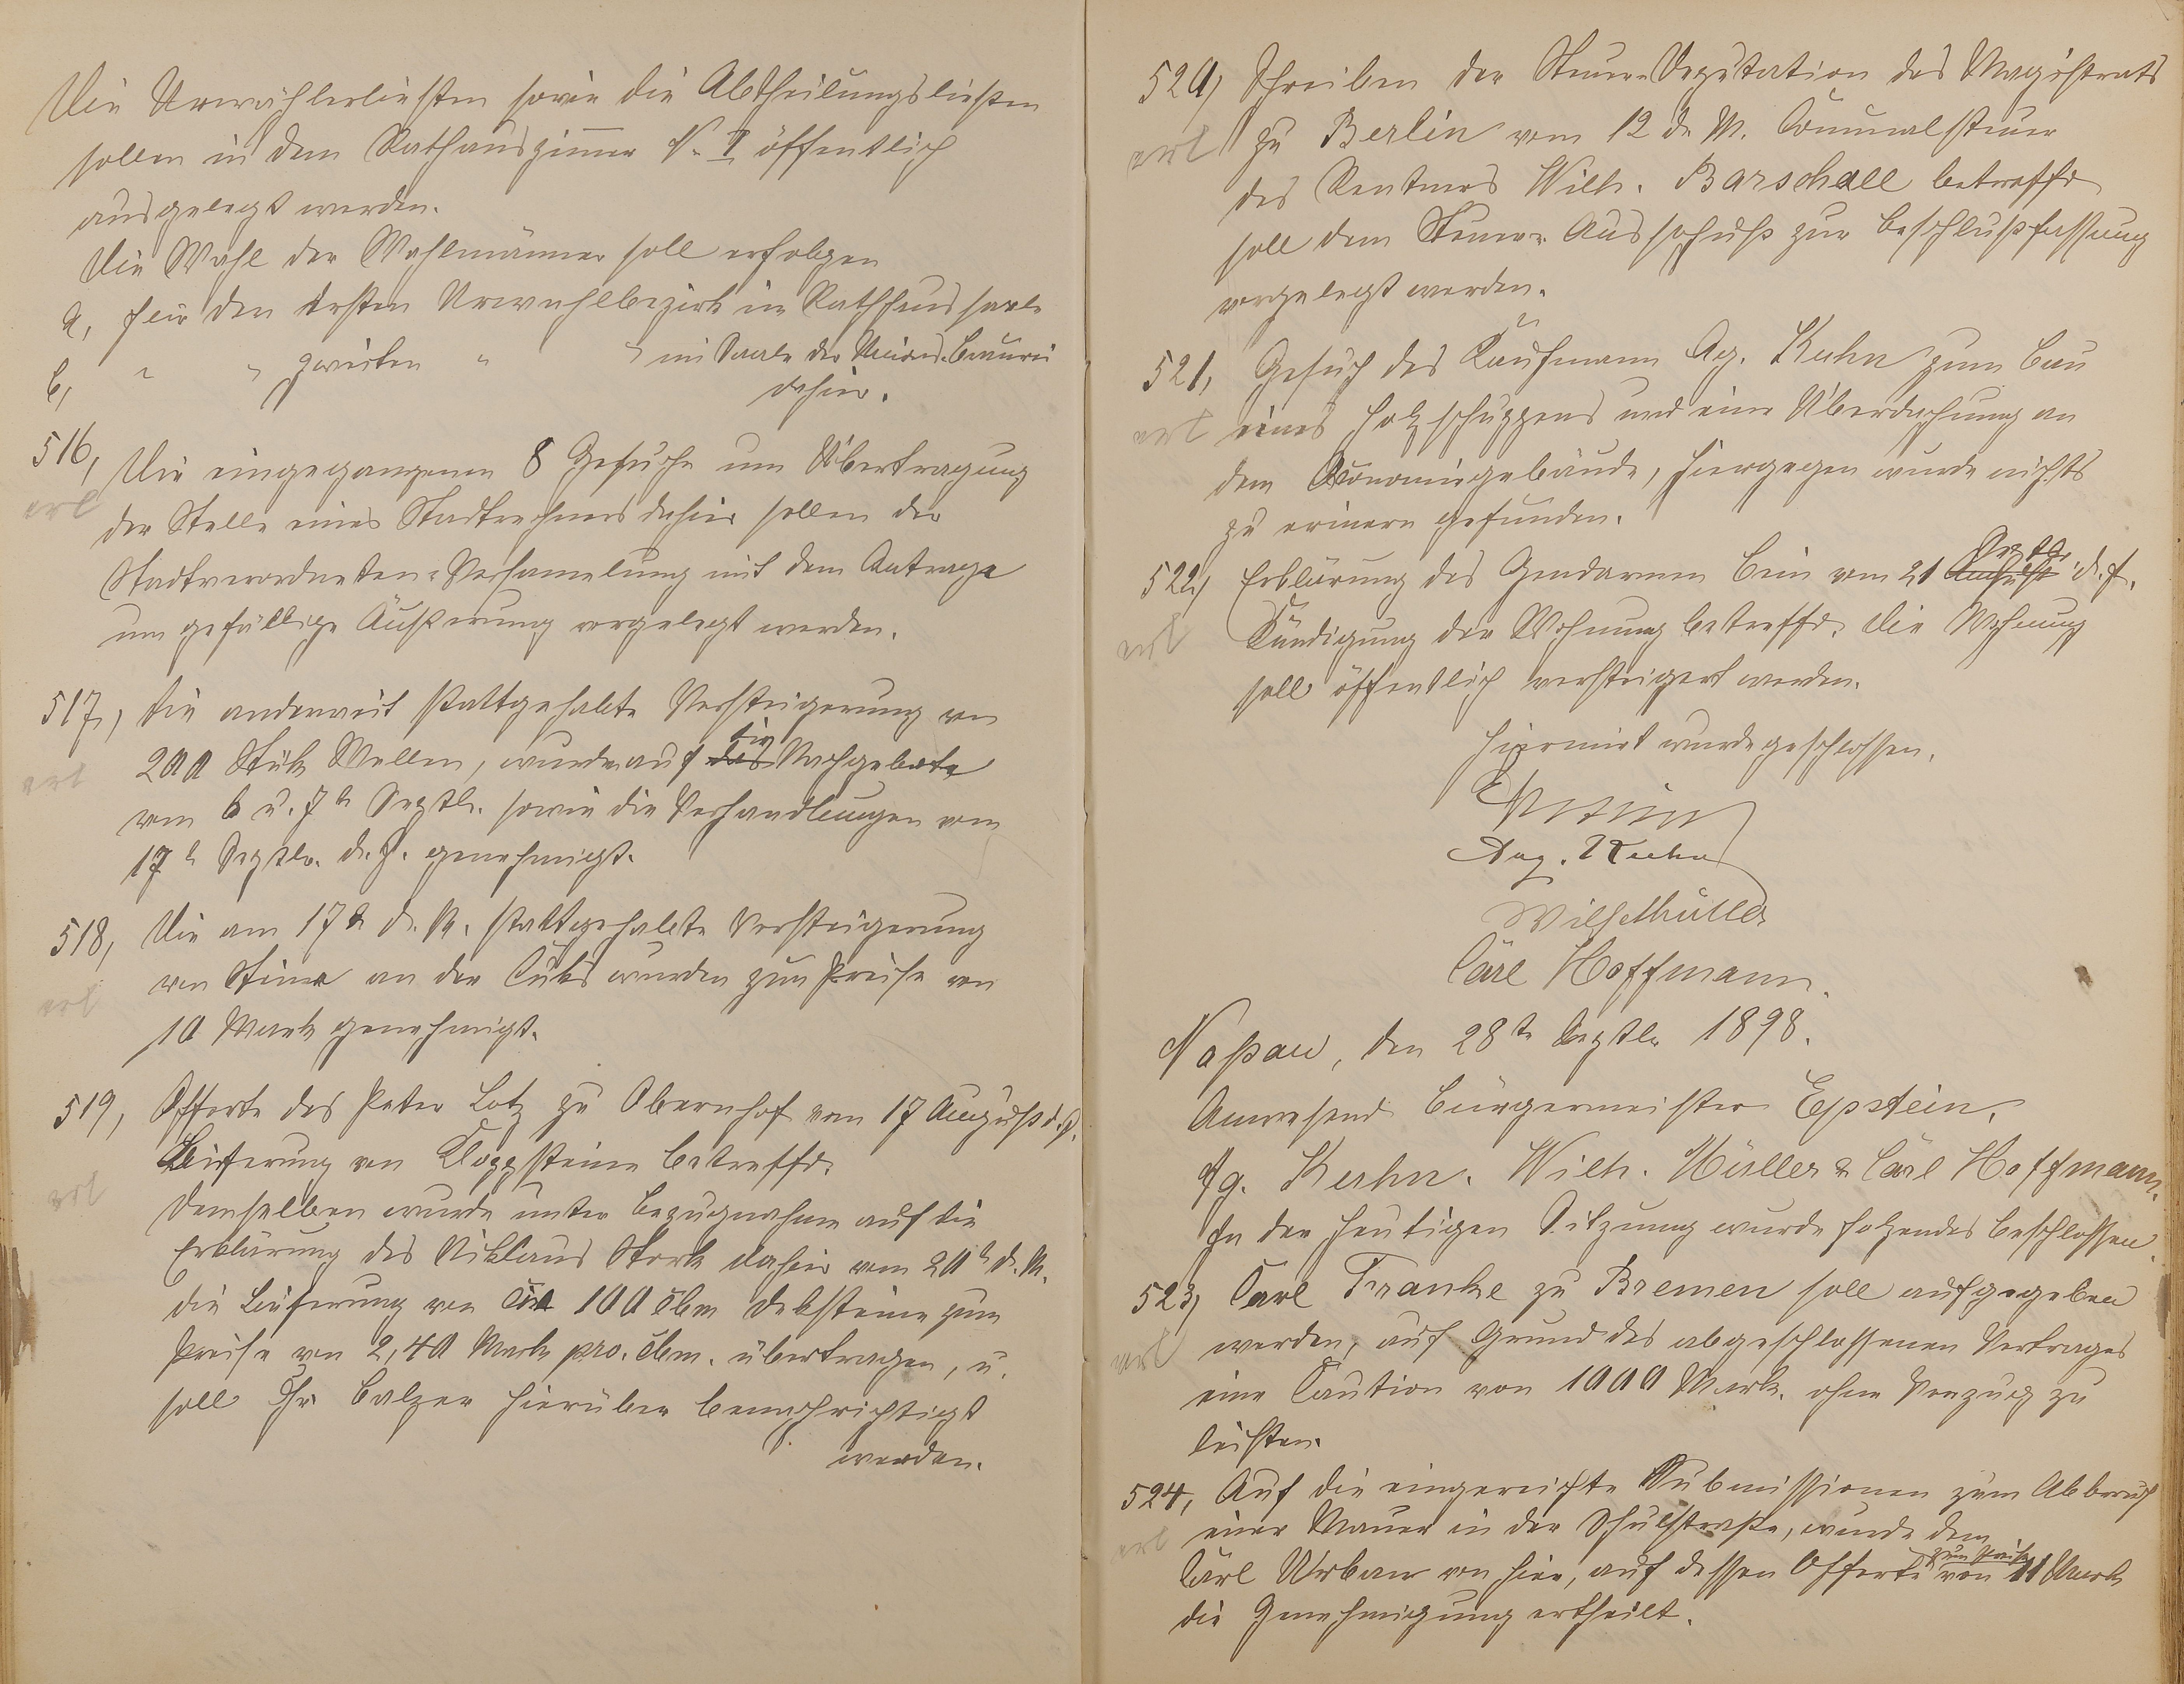 Die Urwählerliesten sowie die Abtheilungsliesten
sollen in dem Rathauszimmer N. I öffentlich
ausgelegt werden.
Die Wahl der Wahlmänner soll erfolgen
a, für den ersten Urwahlbezirk im Rathhaussaale
b, " " zweiten " " im Saale der Union-Brauerei
dahier.
516, Die eingegangenen 8 Gesuche um Übertragung
erl
der Stelle eines Stadtrechners dahier sollen der
Stadtverordneten-Versamelung mit dem Antrage
um gefällige Äußerung vorgelegt werden.
517, Die anderweit stattgehabte Versteigerung von
200 Stük Wellen, wurde auf die Nachgebote
erl
vom 6 u. 7t Septbr. sowie die Verhandlungen vom
17t Septbr. d. J. genehmigt.
518, Die am 17t d. M. stattgehabte Versteigerung
von Steine an der wurden zum Preise von
erl
10 Mark genehmigt.
519, Offerte des Peter Lotz zu Obernhof vom 17 August d. J.
Lieferung von Kloppsteine betreffd.
erl
Demselben wurde unter Bezugnahme auf die
Erklärung des Niklaus Stork dahier vom 20t d. M.
die Lieferung von 100 cbm Deksteine zum
Preise von 2,40 Mark pro. cbm. übertragen, u.
soll Chr. Balzer hierüber benachrichtigt
werden.
520, Schreiben der Steuer-Deputation des Magistrats
erl
zu Berlin vom 12 d. M. Comunalsteuer
des Rentners Wilh. Barschall betreffd
soll dem Steuer-Ausschuß zur Beschlußfassung
vorgelegt werden.
521, Gesuch des Kaufmann Ag. Kuhn zum Bau
erl
eines Holzschuppens und eine Überdachung an
dem Ökonomiegebäude, hiergegen wurde nichts
zu erinern gefunden.
522, Erklärung des Gendarmen vom 21 August Septb. d. J.
erl
Kündigung der Wohnung betreffd. Die Wohnung
soll öffentlich versteigert werden.
Hiermit wurde geschlossen.
Epstein
Aug. Kuhn
Wilh Müller
Carl Hoffmann.
Naßau, den 28te Septbr 1898.
Anwesend Bürgermeister Epstein,
Ag. Kuhn. Wilh. Müller & Carl Hoffmann.
In der heutigen Sitzung wurde folgendes beschlossen.
523, Carl Franke zu Bremen soll aufgegeben
erl
werden, auf Grund des abgeschlossenen Vertrages
eine Caution von 1000 Mark. ohne Verzug zu
leisten.
524, Auf die eingereichte Submissionen zum Abbruch
erl
einer Mauer in der Schulstraße, wurde dem
Carl Urban von hier, auf dessen Offerte zum Preise von 11 Mark
die Genehmigung ertheilt.